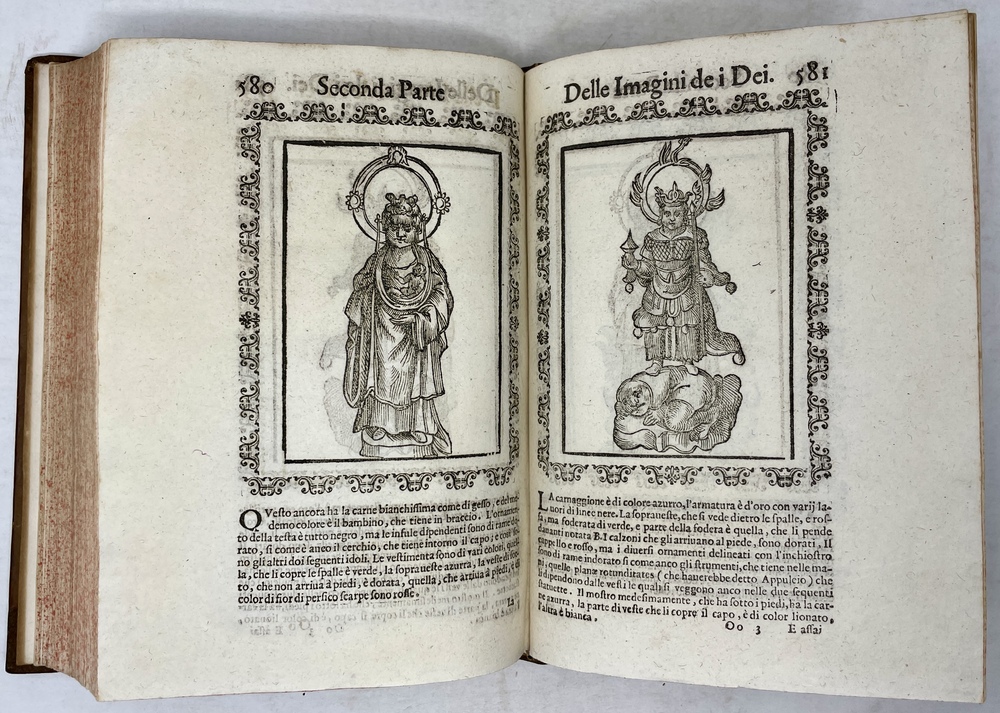 580 Seconda Parte
QVesto ancora ha la carne bianchissima come di gesso, e del
demo colore è il bambino, che tiene in braccio. L'ornamen-
to della testa è tutto negro, ma le infule dipendenti sono di rame do-
rato, si come è anco il cerchio, che tiene intorno il capo; e così
no gli altri doi seguenti idoli. Le vestimenta sono di vari colori, quel-
la, che li copre le spalle è verde, la soprauеste azurra, la veste di
to, che non arriua à piedi, è dorata, quella, che arriua à piedi, è di
color di fior di persico scarpe sono rosse.
La
Delle Imagini de i Dei. 581
LA carnaggione è di colore azurro, l'armatura è d'oro con varij la-
uori di linee nere. La soprauеste, che si vede dietro le spalle, e ros-
sa, ma foderata di verde, e parte della fodera è quella, che li pende
dauanti notata B. I calzoni che gli arriuano al piede, sono dorati, Il
cappello e rosso, ma i diuersi ornamenti delineati con l'inchiostro
sono di rame indorato si come anco gli strumenti, che tiene nelle ma-
ni, quelle planæ rotunditates (che hauerebbe detto Appuleio) che
li dipendono dalle vesti le quali si veggono anco nelle due sequenti
statuette. Il mostro medesimamente, che ha sotto i piedi, ha la car-
ne azurra, la parte di veste che li copre il capo, è di color lionato,
l'altra è bianca.
Oo 3 E assai